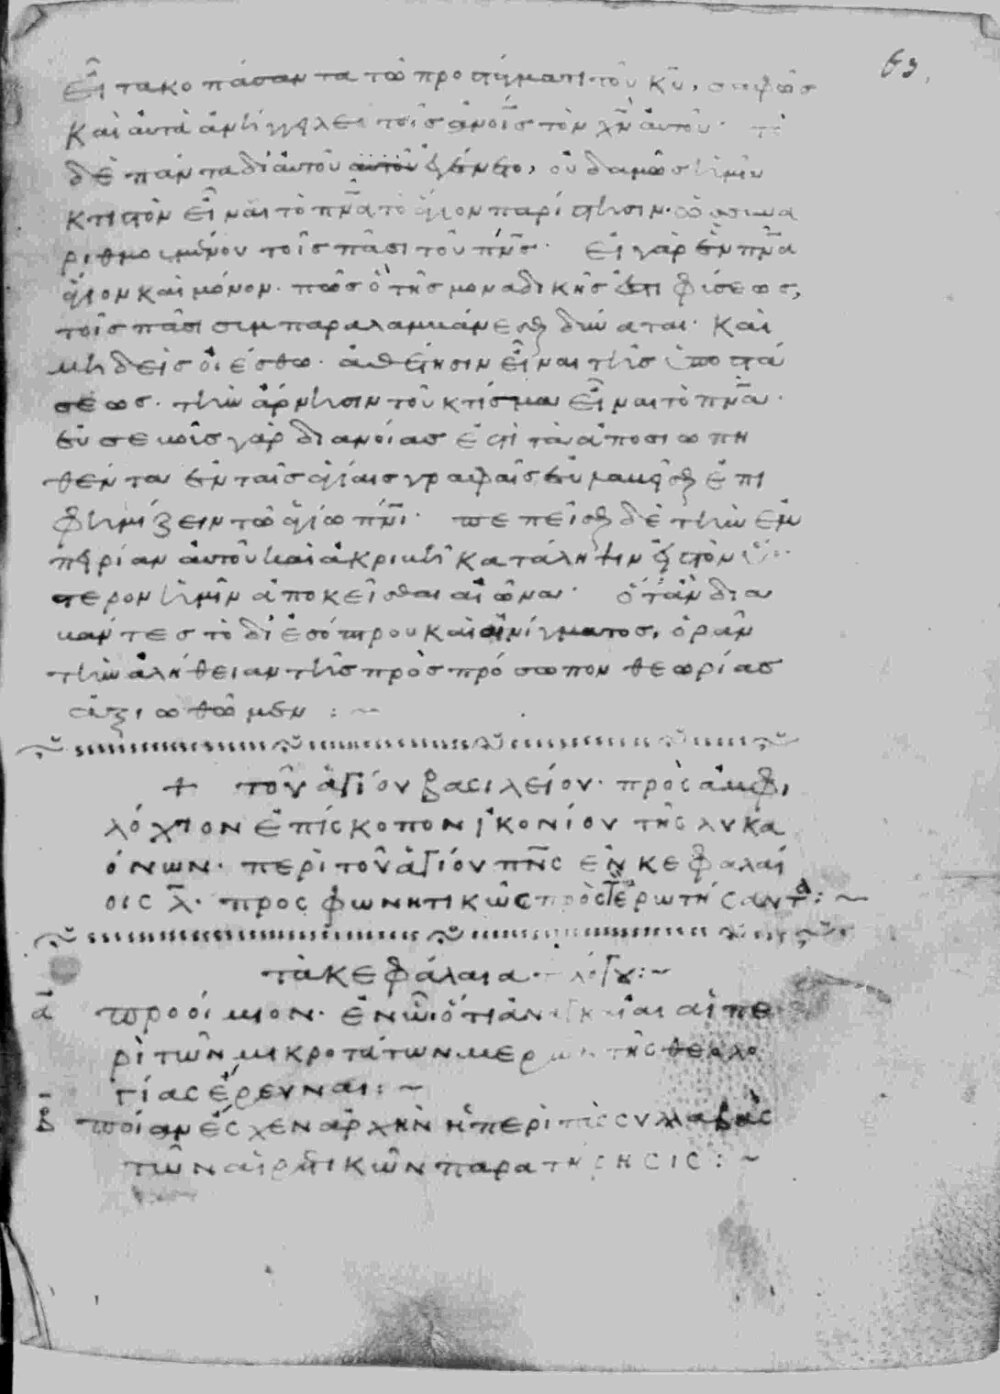 63.
εἶτα κοπάσαντα τῶ προστάγματι τοῦ κῦ, σαφῶσ
καὶ αὐτὰ ἀπήγγελει τοῖσ ἀνοῖσ τὸν χν̄ αὐτοῦ· τὸ
δὲ πάντα δι αὐτοῦ ἐγένετο, οὐδαμῶσ ἡμῖν
κτιστὸν εἶναι τὸ πνᾱ τὸ ἅγιον παρίστησιν· ὡσ συνα
ριθμουμένου τοῖσ πᾶσι τοῦ πνσ̄· εἰ γὰρ ἓν πνᾱ
ἅγιον καὶ μόνον· πῶσ ὁ τῆσ μοναδικῆσ ἐστι φύσεωσ,
τοῖσ πᾶσι συμπαραλαμβάνεσθαι δύναται· καὶ
μηδείσ οἰέσθω· ἀθέτησιν εἶναι τῆσ ὑποστά
σεωσ· τὴν ἄρνησιν τοῦ κτίσμα εἶναι τὸ πνᾱ·
εὐσεβοῦσ γὰρ διανοίασ ἐστὶ τὰ ἀποσιωπη
θέντα ἐν ταῖσ ἁγίαισ γραφαῖσ εὐλαβεῖσθαι ἐπι
φημίζειν τῶ ἁγίω πνῑ· πεπεῖσθαι δὲ τὴν ἐμ
πειρίαν αὐτοῦ καὶ ἀκριβῆ κατάληψιν εἰσ τὸν ὕσ
τερον ἡμῖν ἀποκεῖσθαι αἰῶνα· ὅταν δια
βάντεσ τὸ δι ἐσόπτρου καὶ αἰνίγματοσ, ὁρᾶν
τὴν ἀλήθειαν τῆσ πρὸσ πρόσωπον θεωρίασ
ἀξιωθῶμεν :~
+ τοῦ ἁγίου βασιλείου· πρὸς ἀμφι
λόχιον ἐπίσκοπον ἰκονίου τῆς λυκα
όνων· περὶ τοῦ ἁγίου πνς̄ ἐν κεφαλαί
οις λ̄· προσφωνητικῶς πρὸς ἐρωτήσαντα :~
τὰ κεφάλαια λόγου :~
ᾱ προοίμιον· ἐν ὧ ὅτι ἀναγκαῖαι αἱ πε
ρὶ τῶν μικροτάτων μερῶν τῆς θεολο
γίας ἔρευναι :~
β̄ ποίαν ἔσχεν ἀρχὴν ἡ περὶ τὰς συλλαβὰς
τῶν αἱρετικῶν παρατήρησις :~